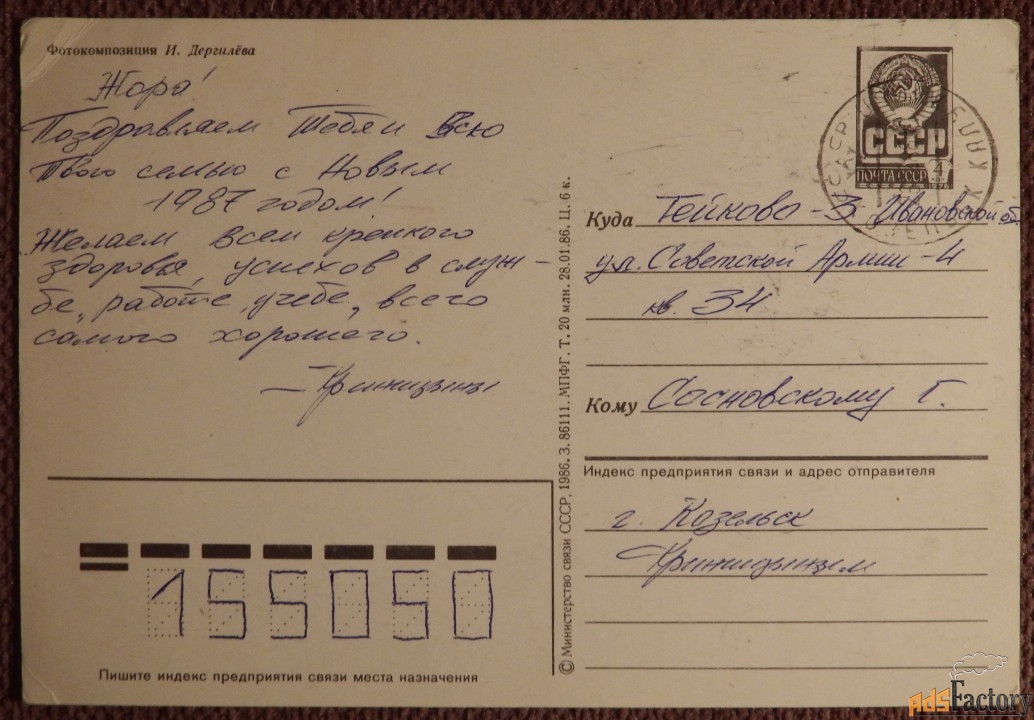 Фотокомпозиция И. Дергилёва
Жора!
Поздравляем Тебя и Всю
Твою семью с Новым
1987 годом!
Желаем всем крепкого
здоровья, успехов в служ-
бе, работе, учебе, всего
самого хорошего.
СССР
ПОЧТА СССР
4
КОП
1976
Куда Тейково-3 Ивановской об
ул. Советской Армии-4
кв. 34
Кому Сосновскому Г.
Индекс предприятия связи и адрес отправителя
г. Козельск
155050
Пишите индекс предприятия связи места назначения
© Министерство связи СССР, 1986. З. 86111. МПФГ. Т. 20 млн. 28.01.86. Ц. 6 к.
AdsFactory